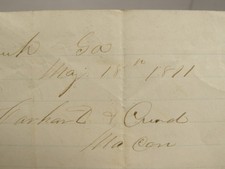 Ga
May 18th 1871
Carhart & Curd
Macon